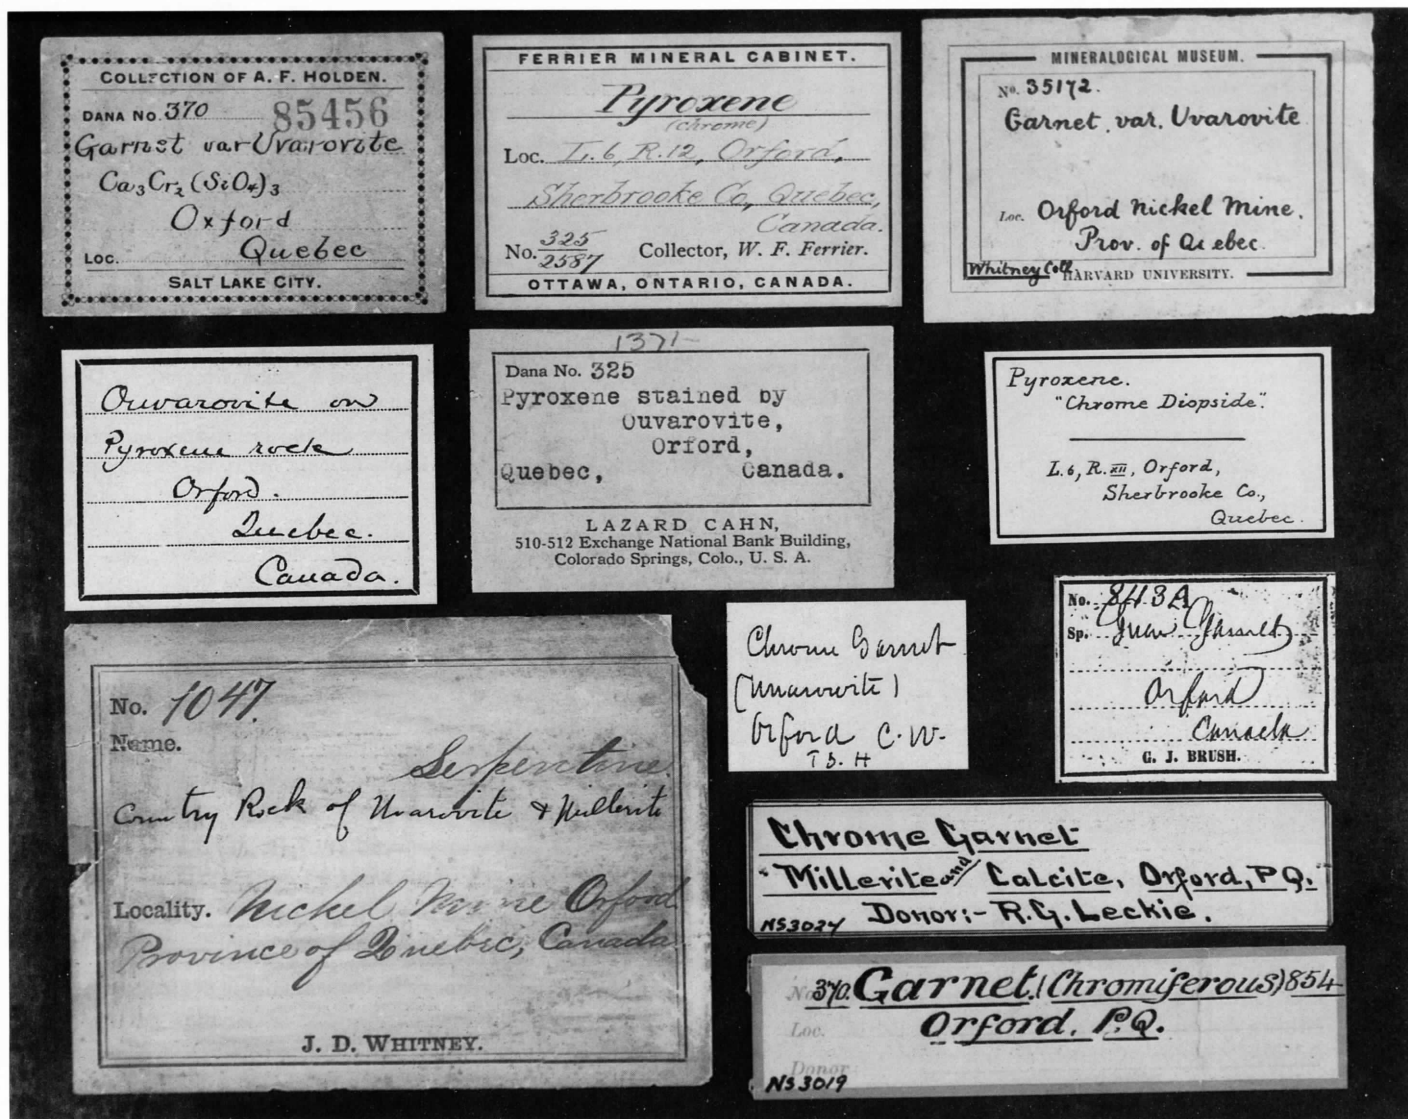 COLLECTION OF A. F. HOLDEN.
DANA No. 370 85456
Garnet var Uvarovite
Ca3Cr2(SiO4)3
Oxford
LOC. Quebec
SALT LAKE CITY.
FERRIER MINERAL CABINET.
Pyroxene
(chrome)
Loc. L.6, R.12, Orford,
Sherbrooke Co, Quebec,
Canada.
No. 325/2587 Collector, W. F. Ferrier.
OTTAWA, ONTARIO, CANADA.
MINERALOGICAL MUSEUM.
No. 35172.
Garnet. var. Uvarovite
Loc. Orford Nickel Mine.
Prov. of Quebec.
Whitney Coll. HARVARD UNIVERSITY.
Ouvarovite on
Pyroxene rock
Orford.
Quebec.
Canada.
1371
Dana No. 325
Pyroxene stained by
Ouvarovite,
Orford,
Quebec, Canada.
LAZARD CAHN,
510-512 Exchange National Bank Building,
Colorado Springs, Colo., U. S. A.
Pyroxene.
"Chrome Diopside".
L.6, R.XII, Orford,
Sherbrooke Co.,
Quebec.
No. 1047.
Name.
Serpentine
Country Rock of Uvarovite & Millerite
Locality. Nickel Mine Orford
Province of Quebec, Canada
J. D. WHITNEY.
Chrome Garnet
(Uvarovite)
Orford C.W.
T S. H
No. 843A
Sp.
Orford
Canada
G. J. BRUSH.
Chrome Garnet
Millerite and Calcite, Orford, P.Q.
Donor:- R.G. Leckie.
NS3024
No. 370. Garnet. (Chromiferous) 854
Loc. Orford. P.Q.
Donor
NS3019